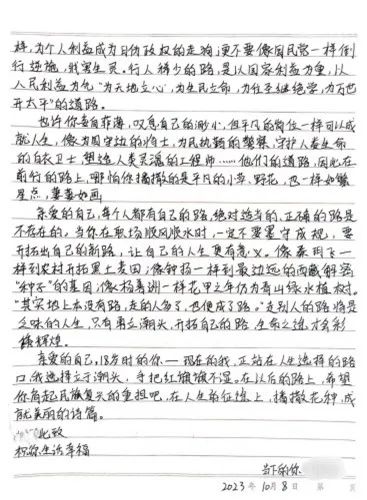 样，为个人利益成为日伪政权的走狗，更不要像国民党一样倒
行逆施，戕害生灵。行人稀少的路，是以国家利益为重，以
人民利益为先，"为天地立心，为生民立命，为往圣继绝学，为万世
开太平"的道路。
也许你妄自菲薄，叹息自己的渺小，但平凡的岗位一样可以成
就人生，像为国守边的将士，为民执勤的警察，守护人类生命
的白衣卫士，塑造人类灵魂的工程师……他们的道路，因心在
前行的路上，哪怕你播撒的是平凡的小草、野花，也一样如繁
星点，蔓蔓如画。
亲爱的自己，每个人都有自己的路，绝对适当的、正确的路是
不存在的。当你在职场顺风顺水时，一定不要墨守成规，要
开拓出自己的新路，让自己的人生更有意义。像
一样到农村开拓黑土麦田；像钟扬一样到最边远的西藏解密
"种子"的基因；像杨善洲一样花甲之年仍为青山绿水植树。
"其实地上本没有路，走的人多了，也便成了路。"走别人的路将是
乏味的人生，只有勇立潮头，开拓自己的路，生命之途才会彩
辉煌。
亲爱的自己，18岁时的你——现在的我，正站在人生选择的路
口，我选择立于潮头，手把红旗旗不湿。在以后的路上，希望
你肩起民族复兴的重担吧，在人生每征途上，播撒花种，成
就美丽的诗篇。
此致
祝你生活幸福
当下的你
2023 年 10 月 8 日 第 页